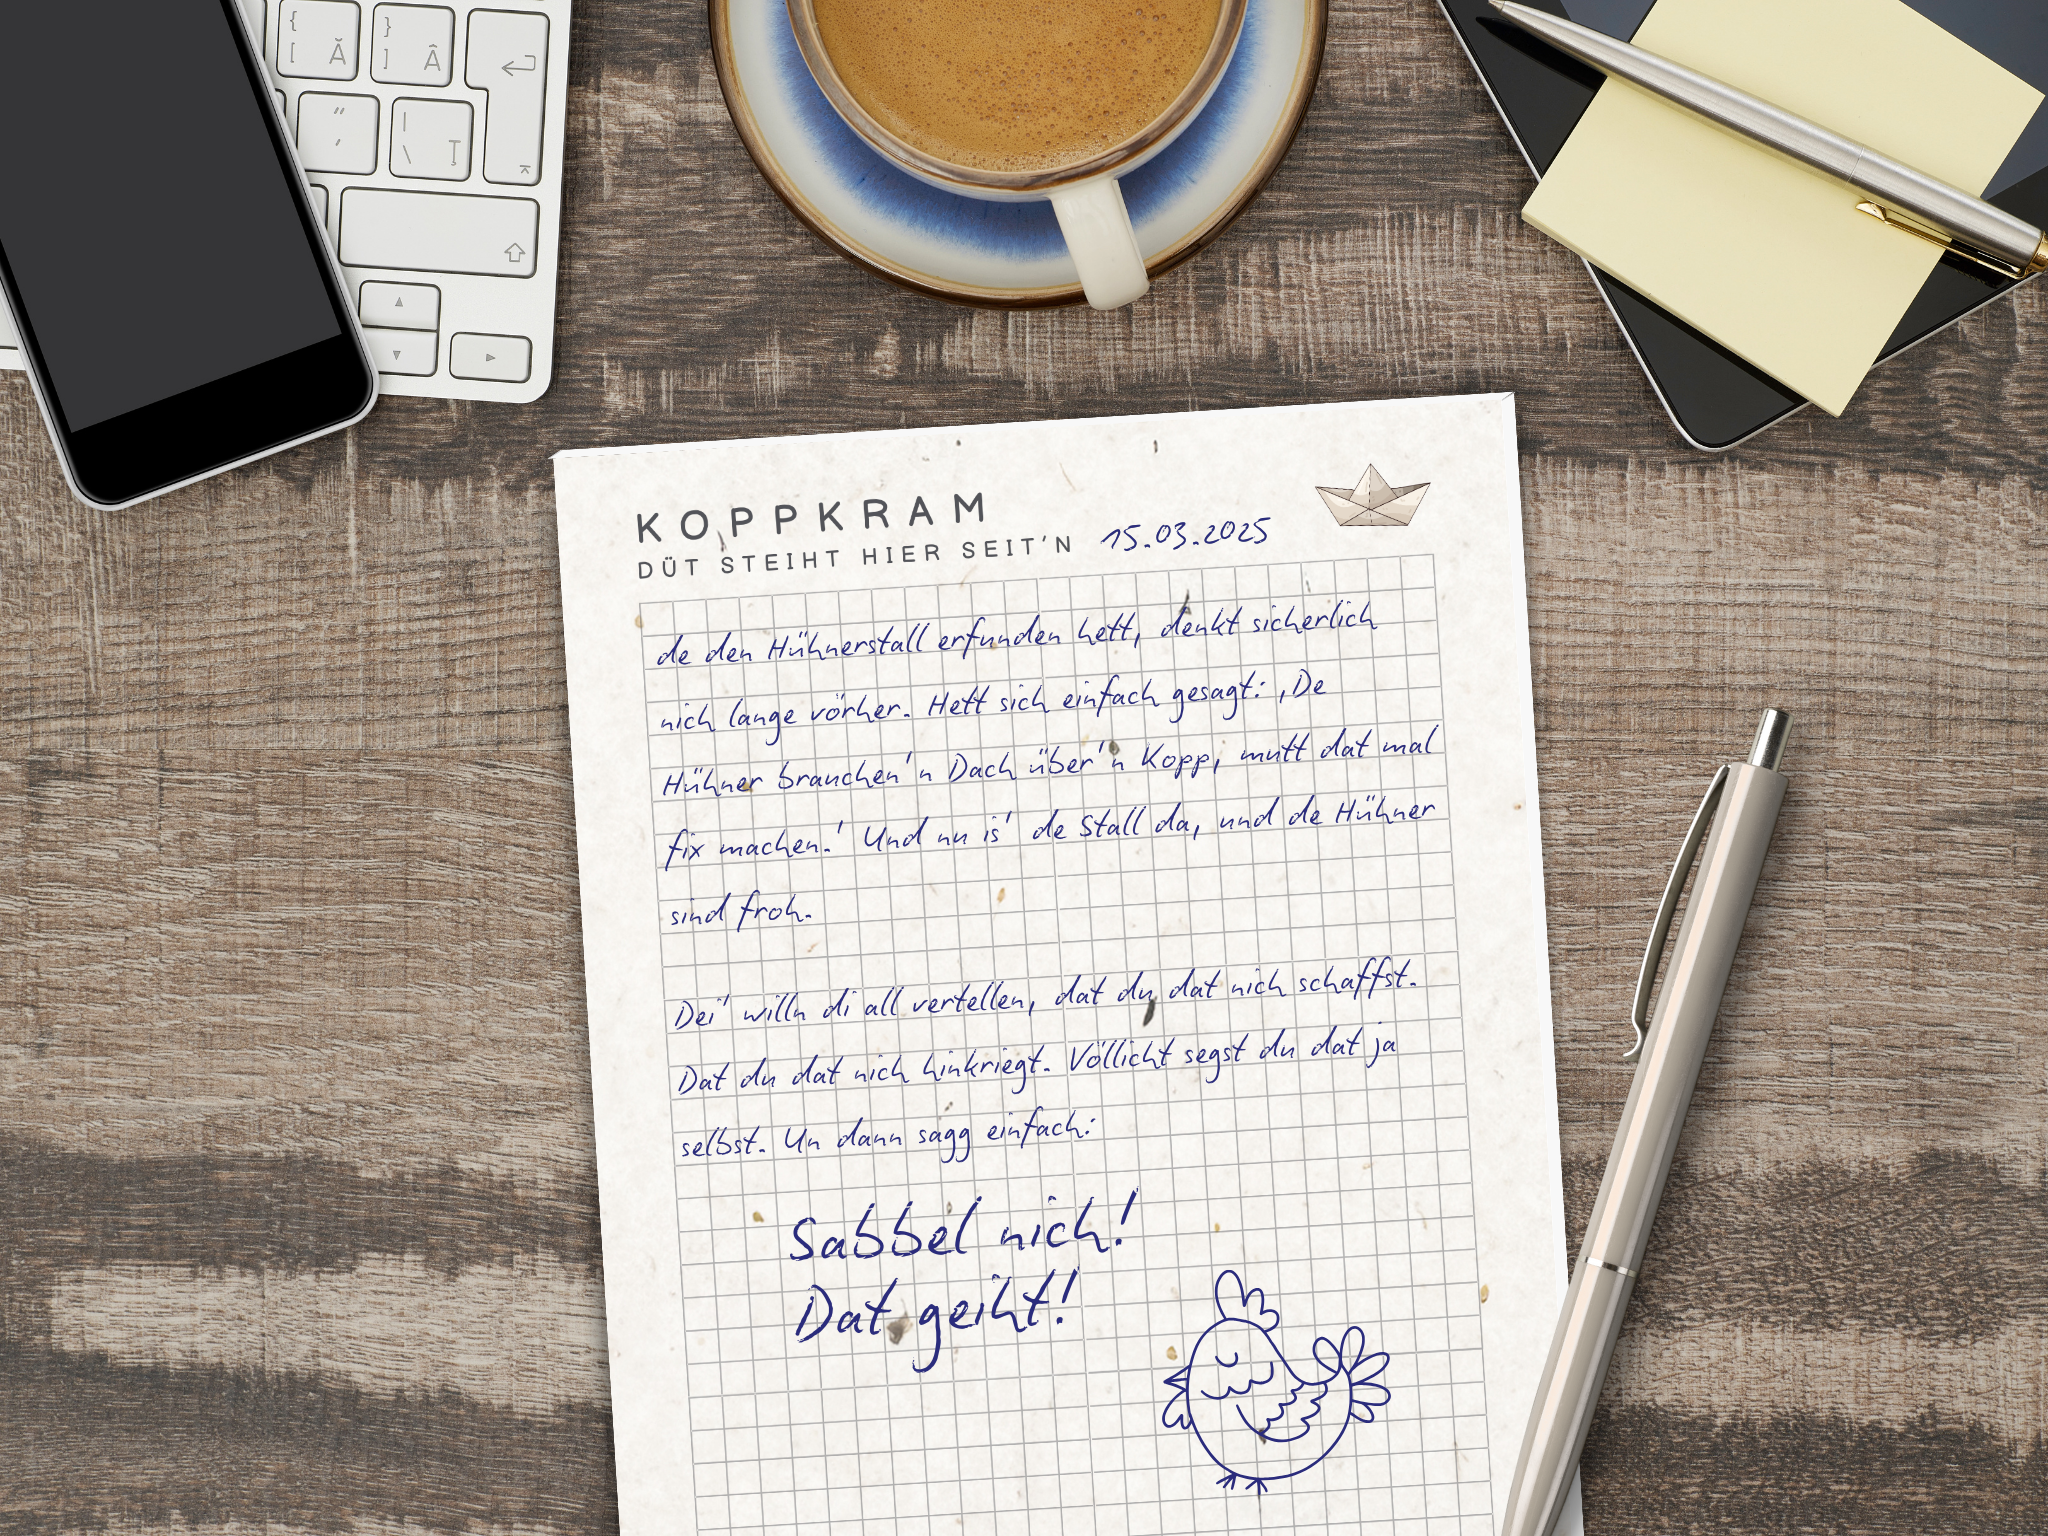 {
[ Ă
}
] Â
"
,
|
\ Ţ
KOPPKRAM
DÜT STEIHT HIER SEIT'N 15.03.2025
de den Hühnerstall erfunden hett, denkt sicherlich
nich lange vörher. Hett sich einfach gesagt: ‚De
Hühner brauchen'n Dach über'n Kopp, mutt dat mal
fix machen.' Und nu is' de Stall da, und de Hühner
sind froh.
Dei' willn di all vertellen, dat du dat nich schaffst.
Dat du dat nich hinkriegt. Völlicht segst du dat ja
selbst. Un dann sagg einfach:
Sabbel nich!
Dat geiht!